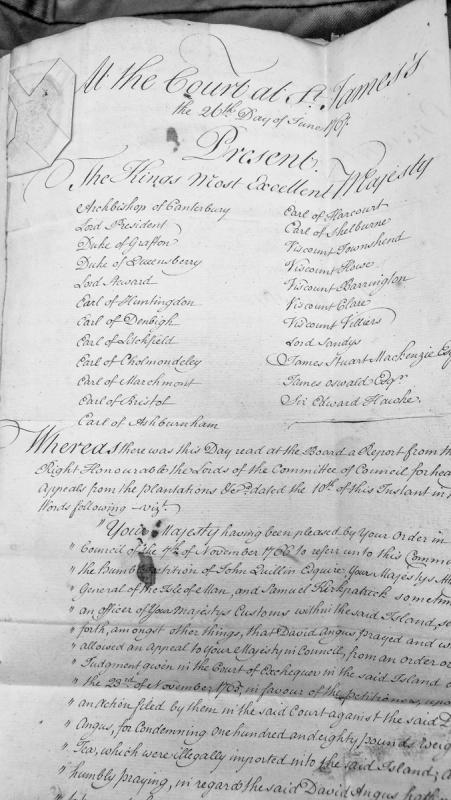 At the Court at St. James's
the 26th Day of June 1767.
Present.
The Kings Most Excellent Majesty
Archbishop of Canterbury
Lord President
Duke of Grafton
Duke of Queensberry
Lord Steward
Earl of Huntingdon
Earl of Denbigh
Earl of Litchfield
Earl of Cholmondeley
Earl of Marchmont
Earl of Bristol
Earl of Ashburnham
Earl of Harcourt
Earl of Shelburne
Viscount Townshend
Viscount Howe
Viscount Barrington
Viscount Clare
Viscount Villiers
Lord Sandys
James Stuart Mackenzie Esq
James Oswald Esqr.
Sir Edward Hawke.
Whereas there was this Day read at the Board a Report from the
Right Honourable the Lords of the Committee of Council for hea
Appeals from the Plantations &ca. dated the 10th of this Instant in
Words following - vizt.
" Your Majesty having been pleased by Your Order in
" Council of the 7th of November 1766 to refer unto this Commi
" the humble Petition of John Quillin Esquire Your Majestys At
" General of the Isle of Man, and Samuel Kirkpatrick sometim
" an officer of Your Majestys Customs within the said Island, se
" forth, amongst other things, that David Angus prayed and w
" allowed an Appeal to Your Majesty in Council, from an order o
" Judgment given in the Court of Exchequer in the said Island
" the 23rd of November 1765, in favour of the Petitioners, upo
" an Action filed by them in the said Court against the said D
" Angus, for Condemning one hundred and eighty pounds weig
" Tea, which were illegally imported into the said Island; a
" humbly praying, in regard the said David Angus hath